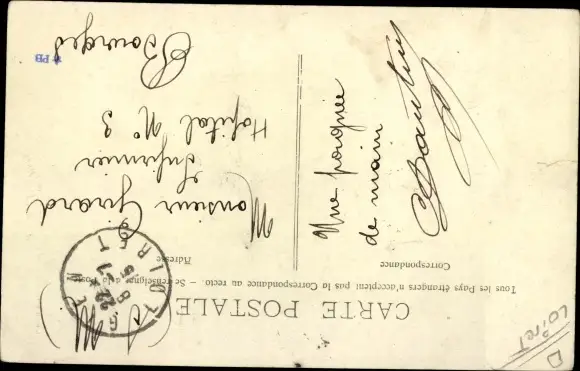 CARTE POSTALE
Tous les Pays étrangers n'acceptent pas la Correspondance au recto. – Se renseigner à la Poste
Correspondance
Adresse
Une poignée
de main
Monsieur Girard
Infirmier
Hopital N° 3
Bourges
LOIRET
PB
Loiret
D